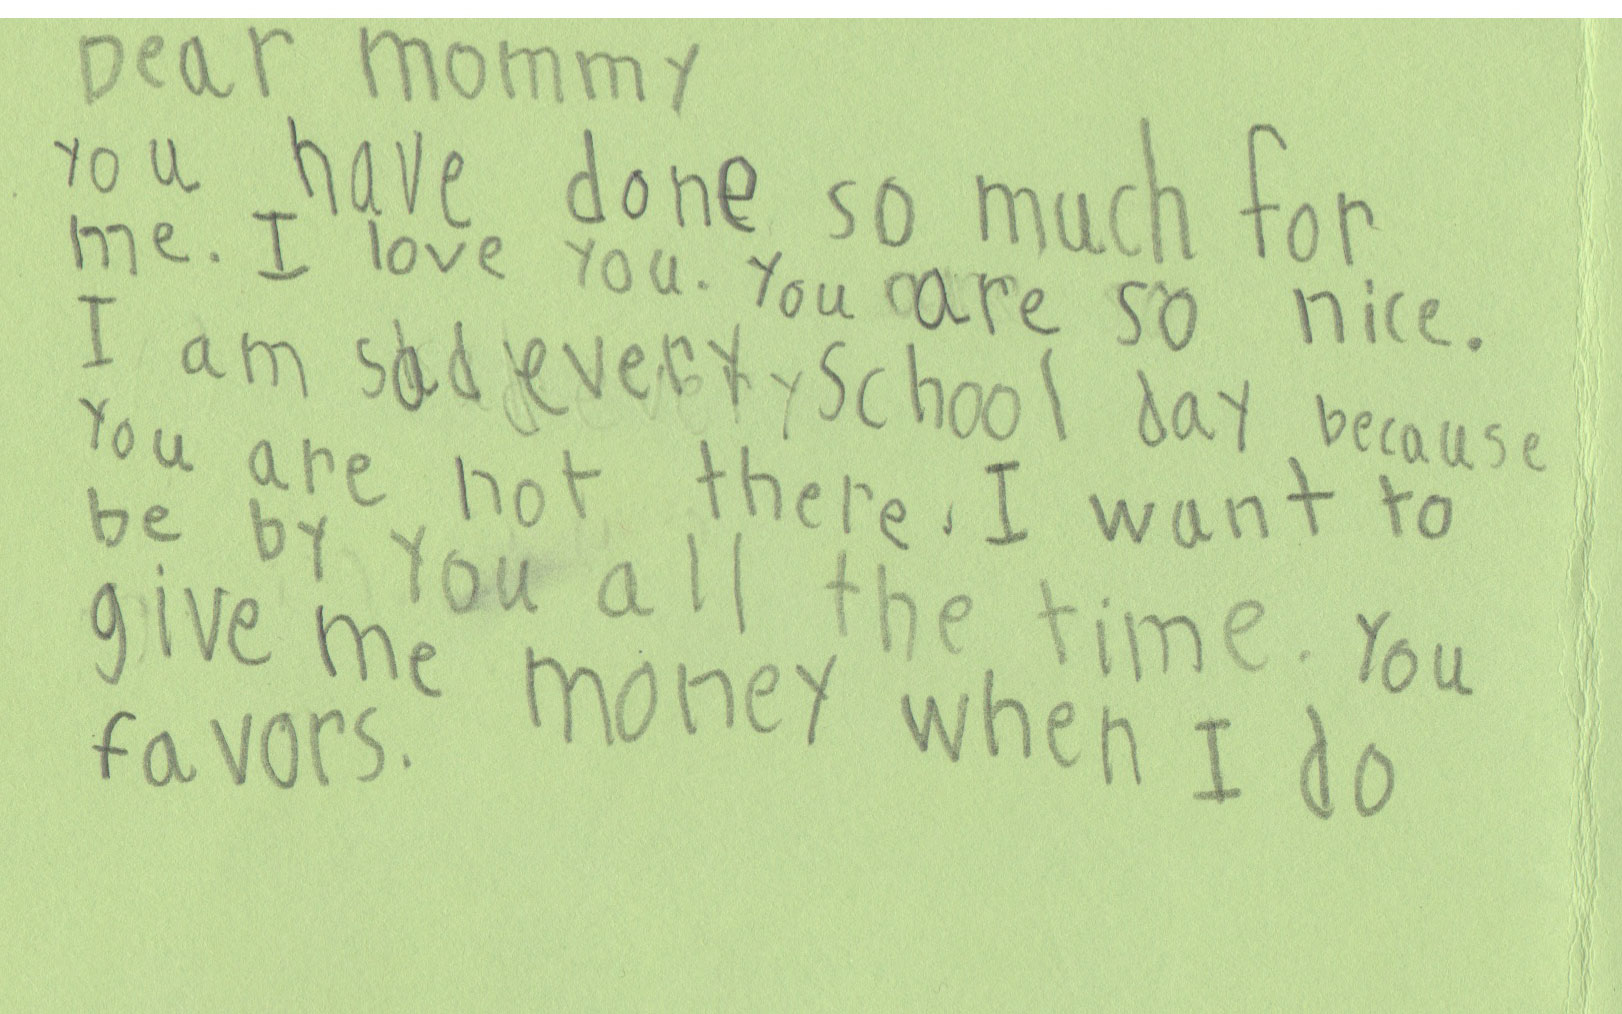 Dear mommy
You have done so much for
me. I love you. You are so nice.
I am sad every school day because
you are not there. I want to
be by you all the time. You
give me money when I do
favors.